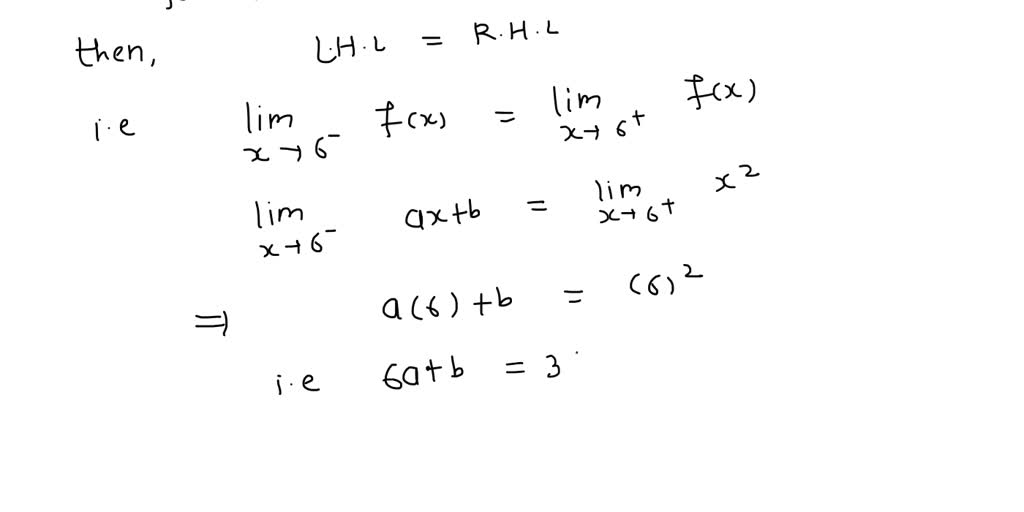 then, L.H.L = R.H.L
i.e lim x→6⁻ f(x) = lim x→6⁺ f(x)
lim x→6⁻ ax+b = lim x→6⁺ x²
⇒ a(6)+b = (6)²
i.e 6a+b = 3